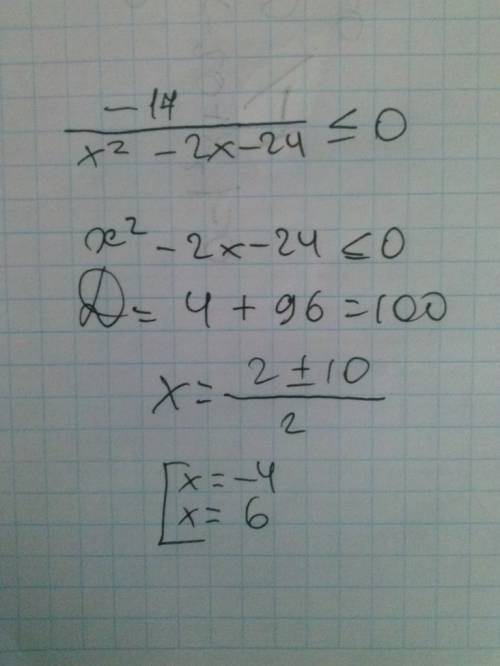 −17
x² − 2x − 24 ≤ 0
x² − 2x − 24 ≤ 0
D = 4 + 96 = 100
x = 2 ± 10
2
x = −4
x = 6